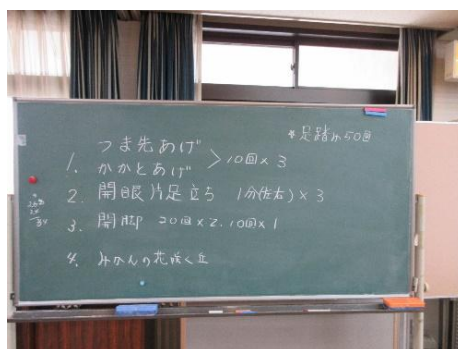 *足踏み50回
つま先あげ
1. かかとあげ > 10回×3
2. 開眼片足立ち 1分(左右)×3
3. 開脚 20回×2. 10回×1
4. みかんの花咲く丘